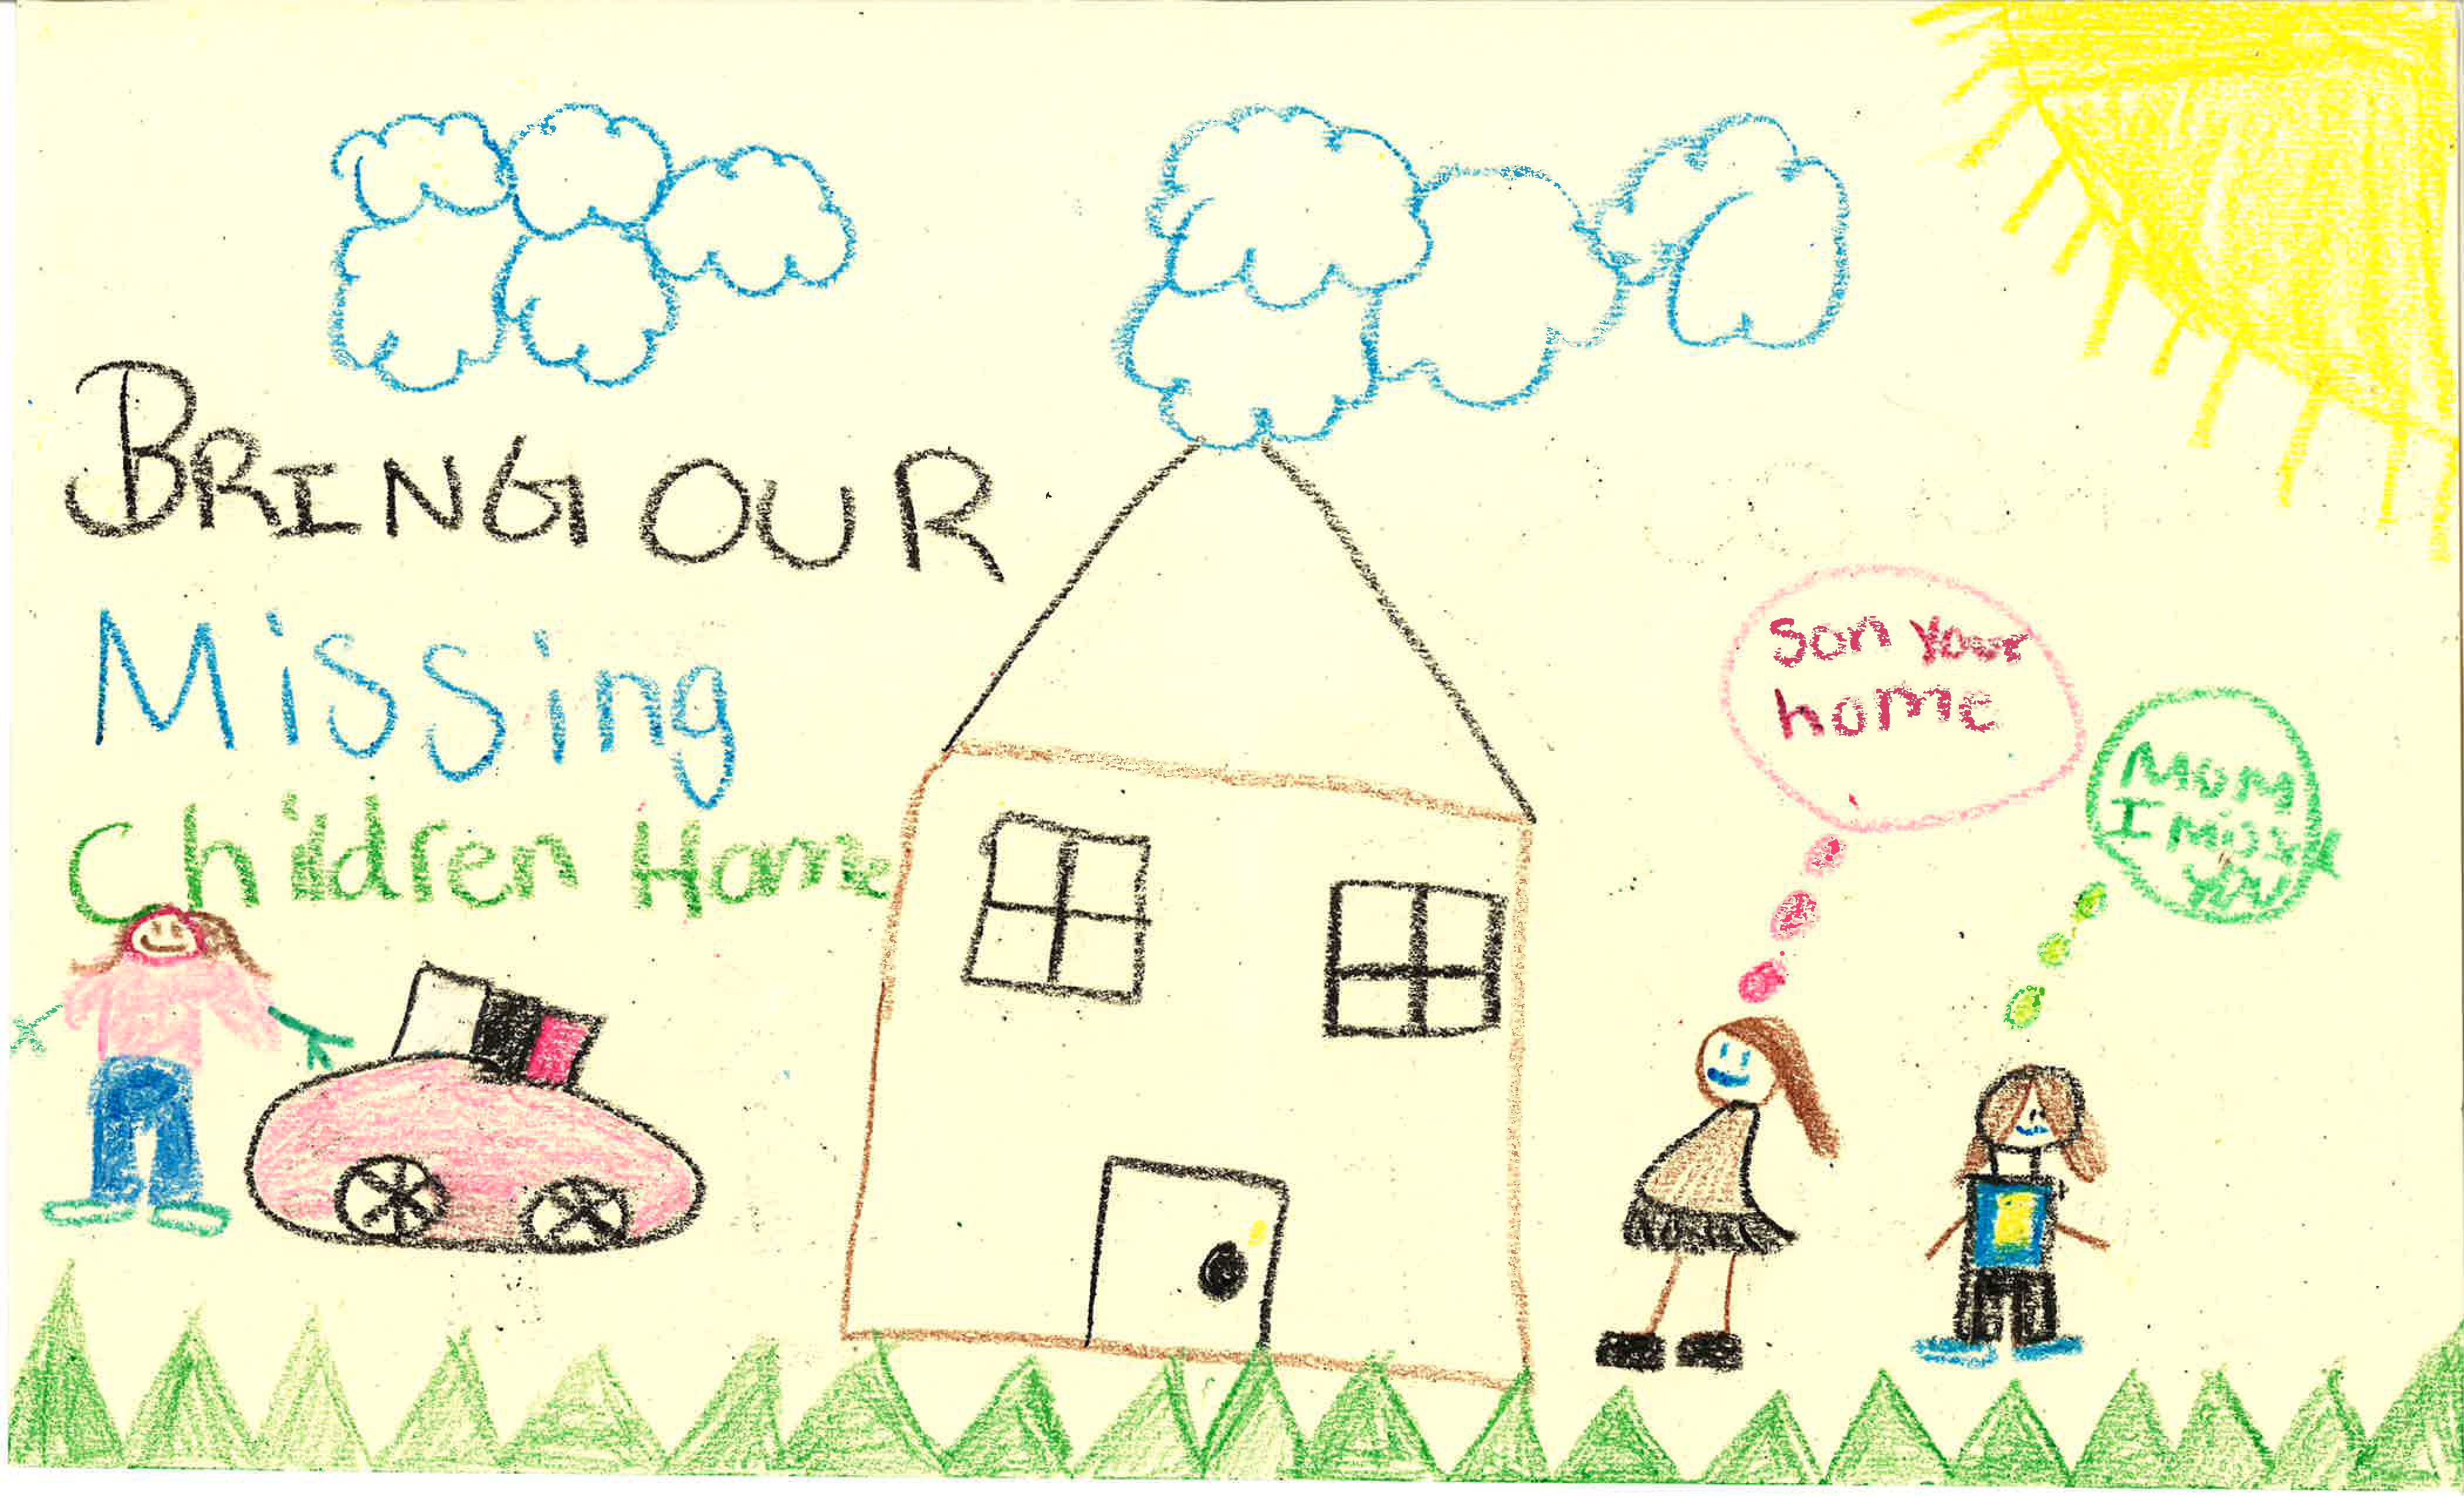 BRING OUR
Missing
Children Home
Son your
home
Mom
I Miss
you